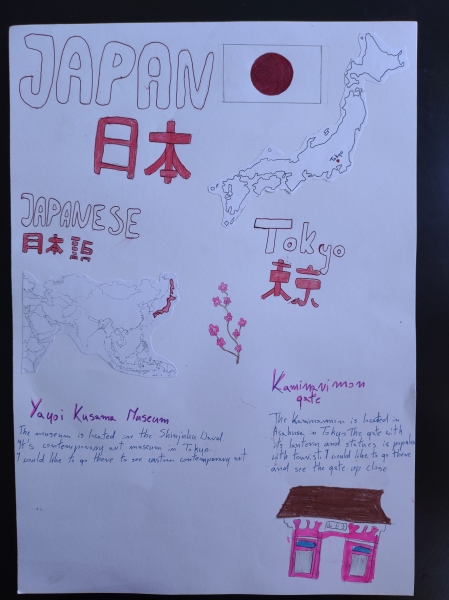 JAPAN
日本
Tokyo
JAPANESE
日本語
Tokyo
東京
Yayoi Kusama Museum
The museum is located in the Shinjuku Ward.
It's contemporary art museum in Tokyo
I would like to go there to see custum contemporary art
Kaminarimon
gate
The Kaminarimon is located in
Asakusa in Tokyo The gate with
its lantern and statues is popular
with tourist. I would like to go there
and see the gate up close